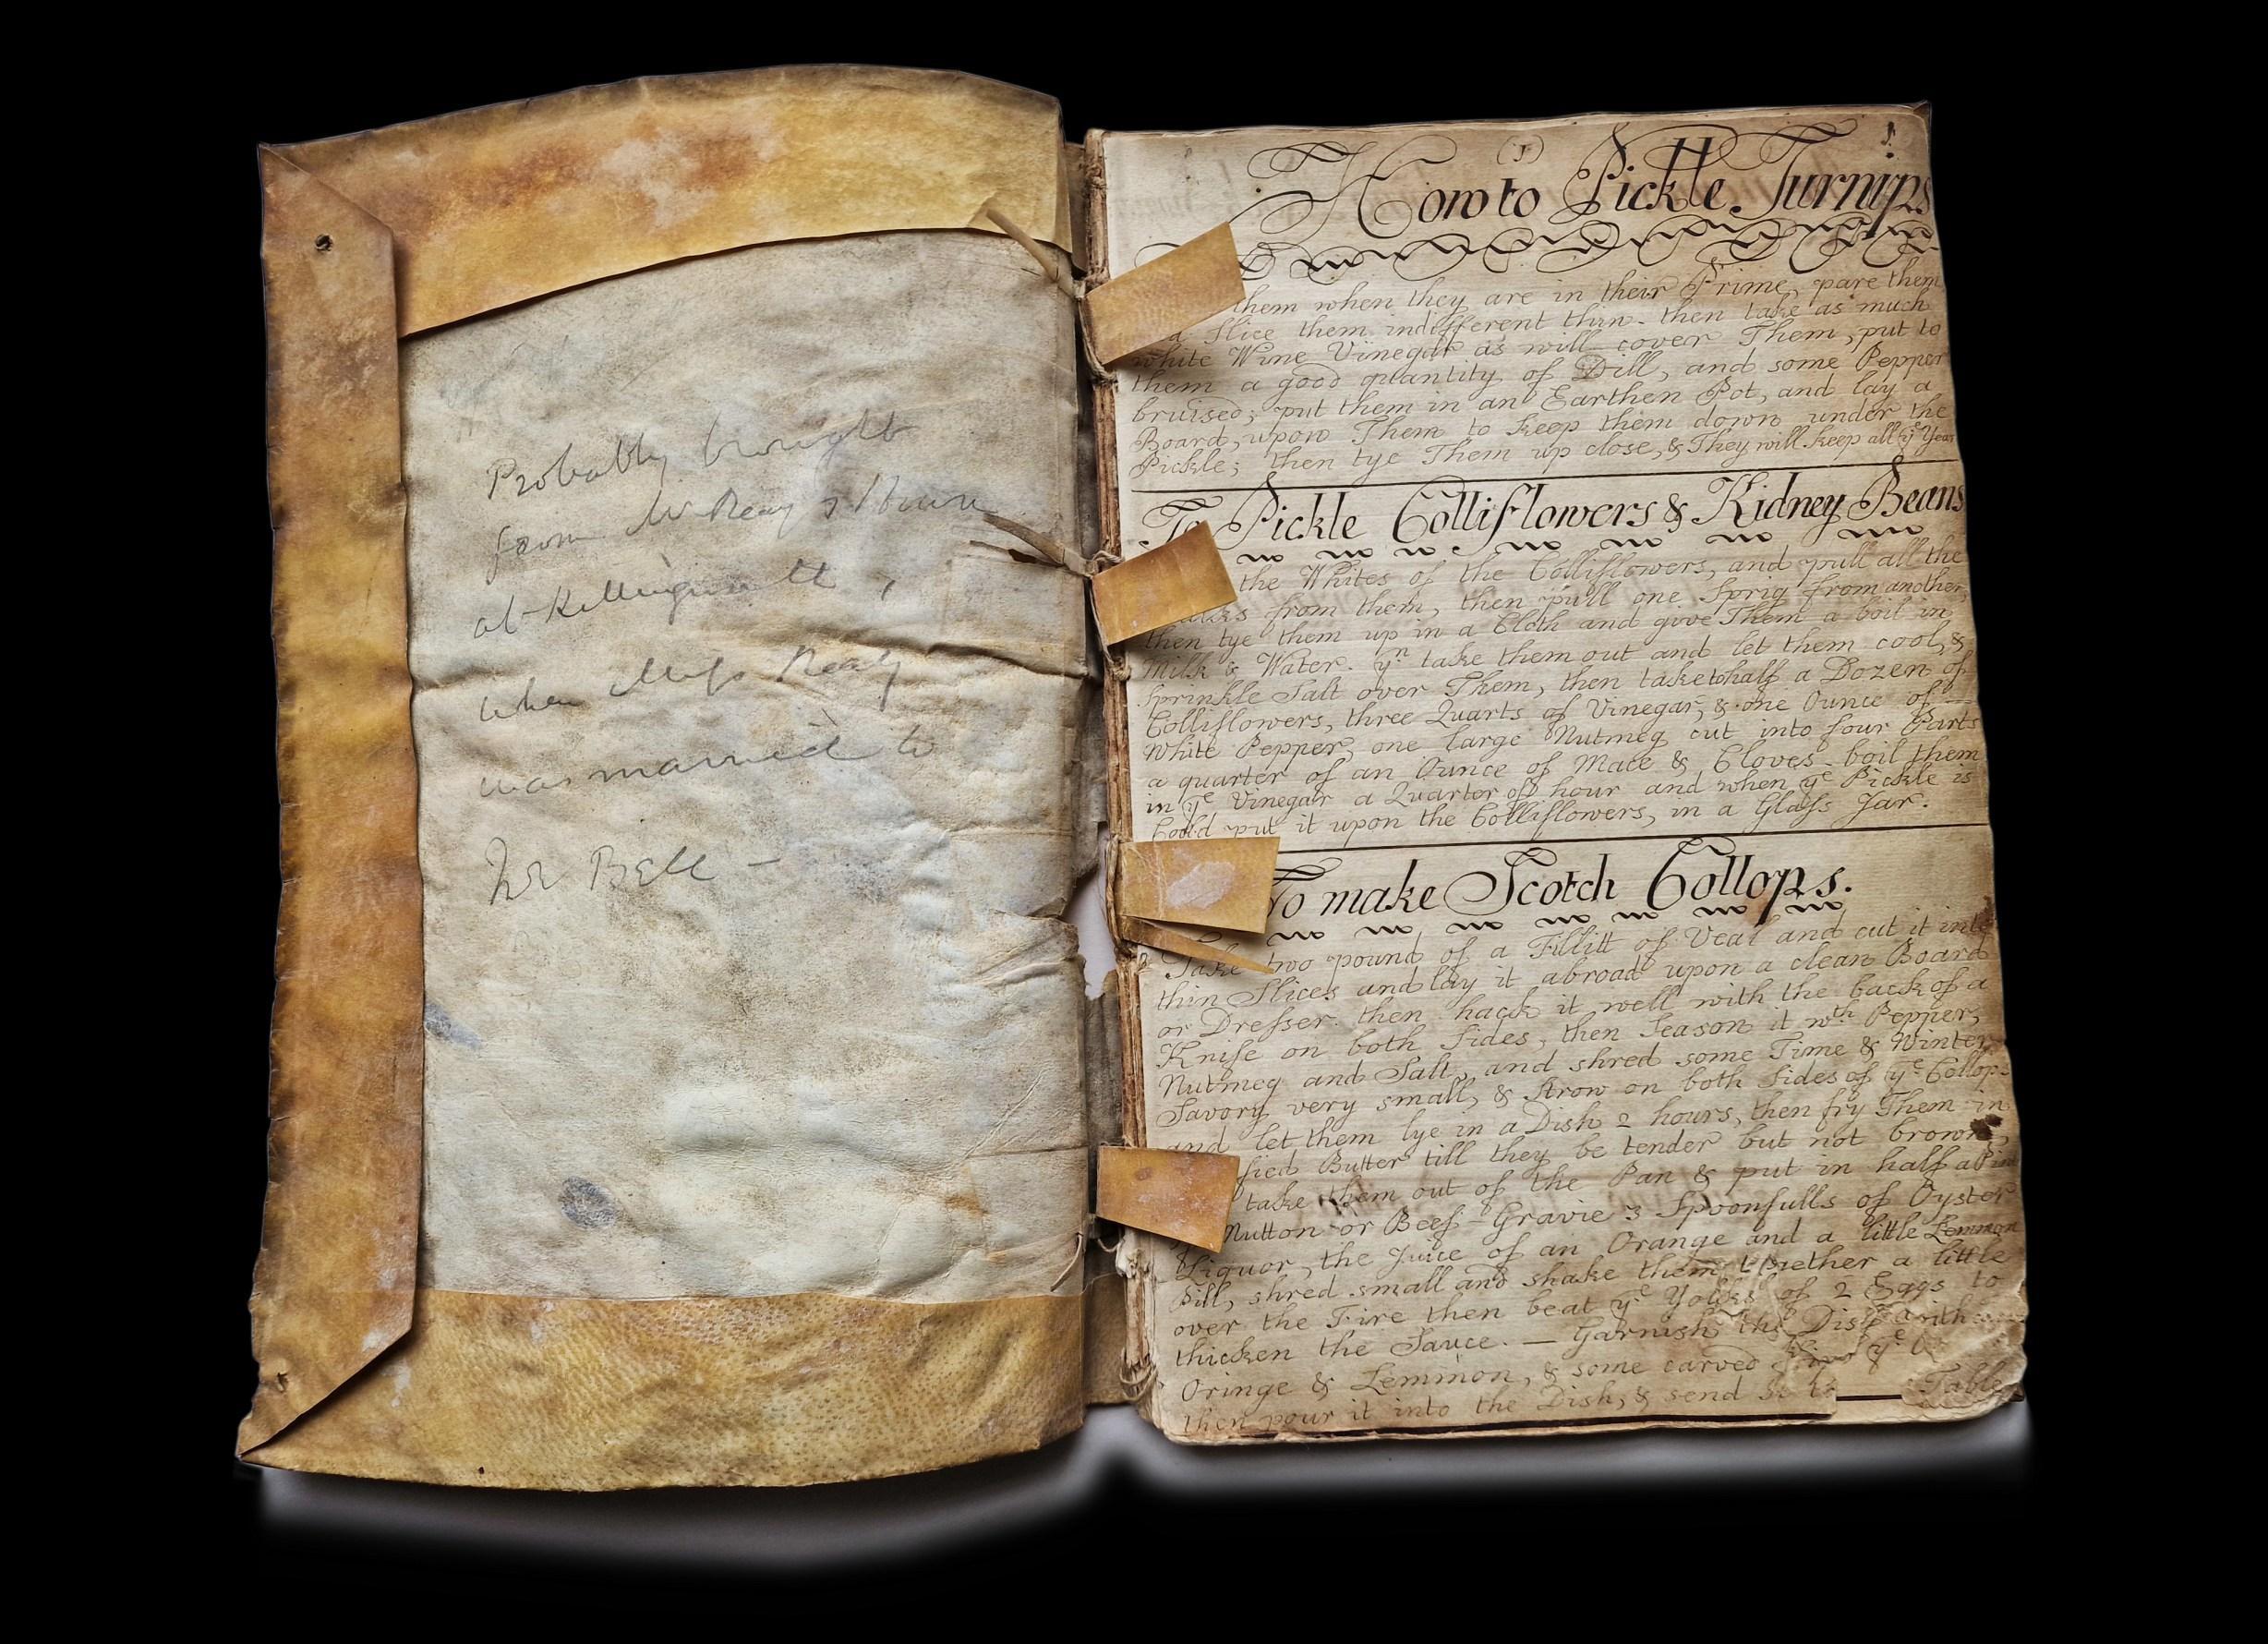 Probably brought
from Mr Reay's House
at Killingworth,
when Miſs Reay
was married to
Mr Bell —
(1)
1.
How to Pickle Turnips
them when they are in their Prime, pare them
Slice them indifferent thin. then take as much
white Wine Vinegar as will cover Them, put to
them a good quantity of Dill, and some Pepper
bruised; put them in an Earthen Pot, and lay a
Board, upon Them to keep them down under the
Pickle; then tye Them up close, & They will keep all yͤ Year
To Pickle Colliflowers & Kidney Beans
the Whites of the Colliflowers, and pull all the
from them, then pull one Sprig from another,
then tye them up in a Cloth and give Them a boil in
Milk & Water. yⁿ take them out and let them cool, &
Sprinkle Salt over Them, then take to half a Dozen of
Colliflowers, three Quarts of Vinegar, & one Ounce of —
White Pepper, one large Nutmeg cut into four Parts
a quarter of an Ounce of Mace & Cloves. boil them
in yͤ Vinegar a Quarter of hour and when yͤ Pickle is
Could put it upon the Colliflowers, in a Glaſs Jar.
To make Scotch Collops.
Take two pound of a Fillitt of Veal and cut it into
thin Slices and lay it abroad upon a clean Board
or Dreſser. then hack it well with the back of a
Knife on both Sides, then Season it wth Pepper,
Nutmeg and Salt, and shred some Time & Winter
Savory very small, & strow on both Sides of yͤ Collops
and let them lye in a Dish 2 hours, then fry Them in
fied Butter till they be tender but not brown,
take them out of the Pan & put in half a Pin
Mutton or Beef-Gravie 3 Spoonfulls of Oyster
Liquor, the Juice of an Orange and a little Lemmon
Pill, shred small and shake them together a little
over the Fire then beat yͤ Yolks of 2 Eggs to
thicken the Sauce. — Garnish the Dish with
Oringe & Lemmon, & some carved yͤ
then pour it into the Dish, & send
Table